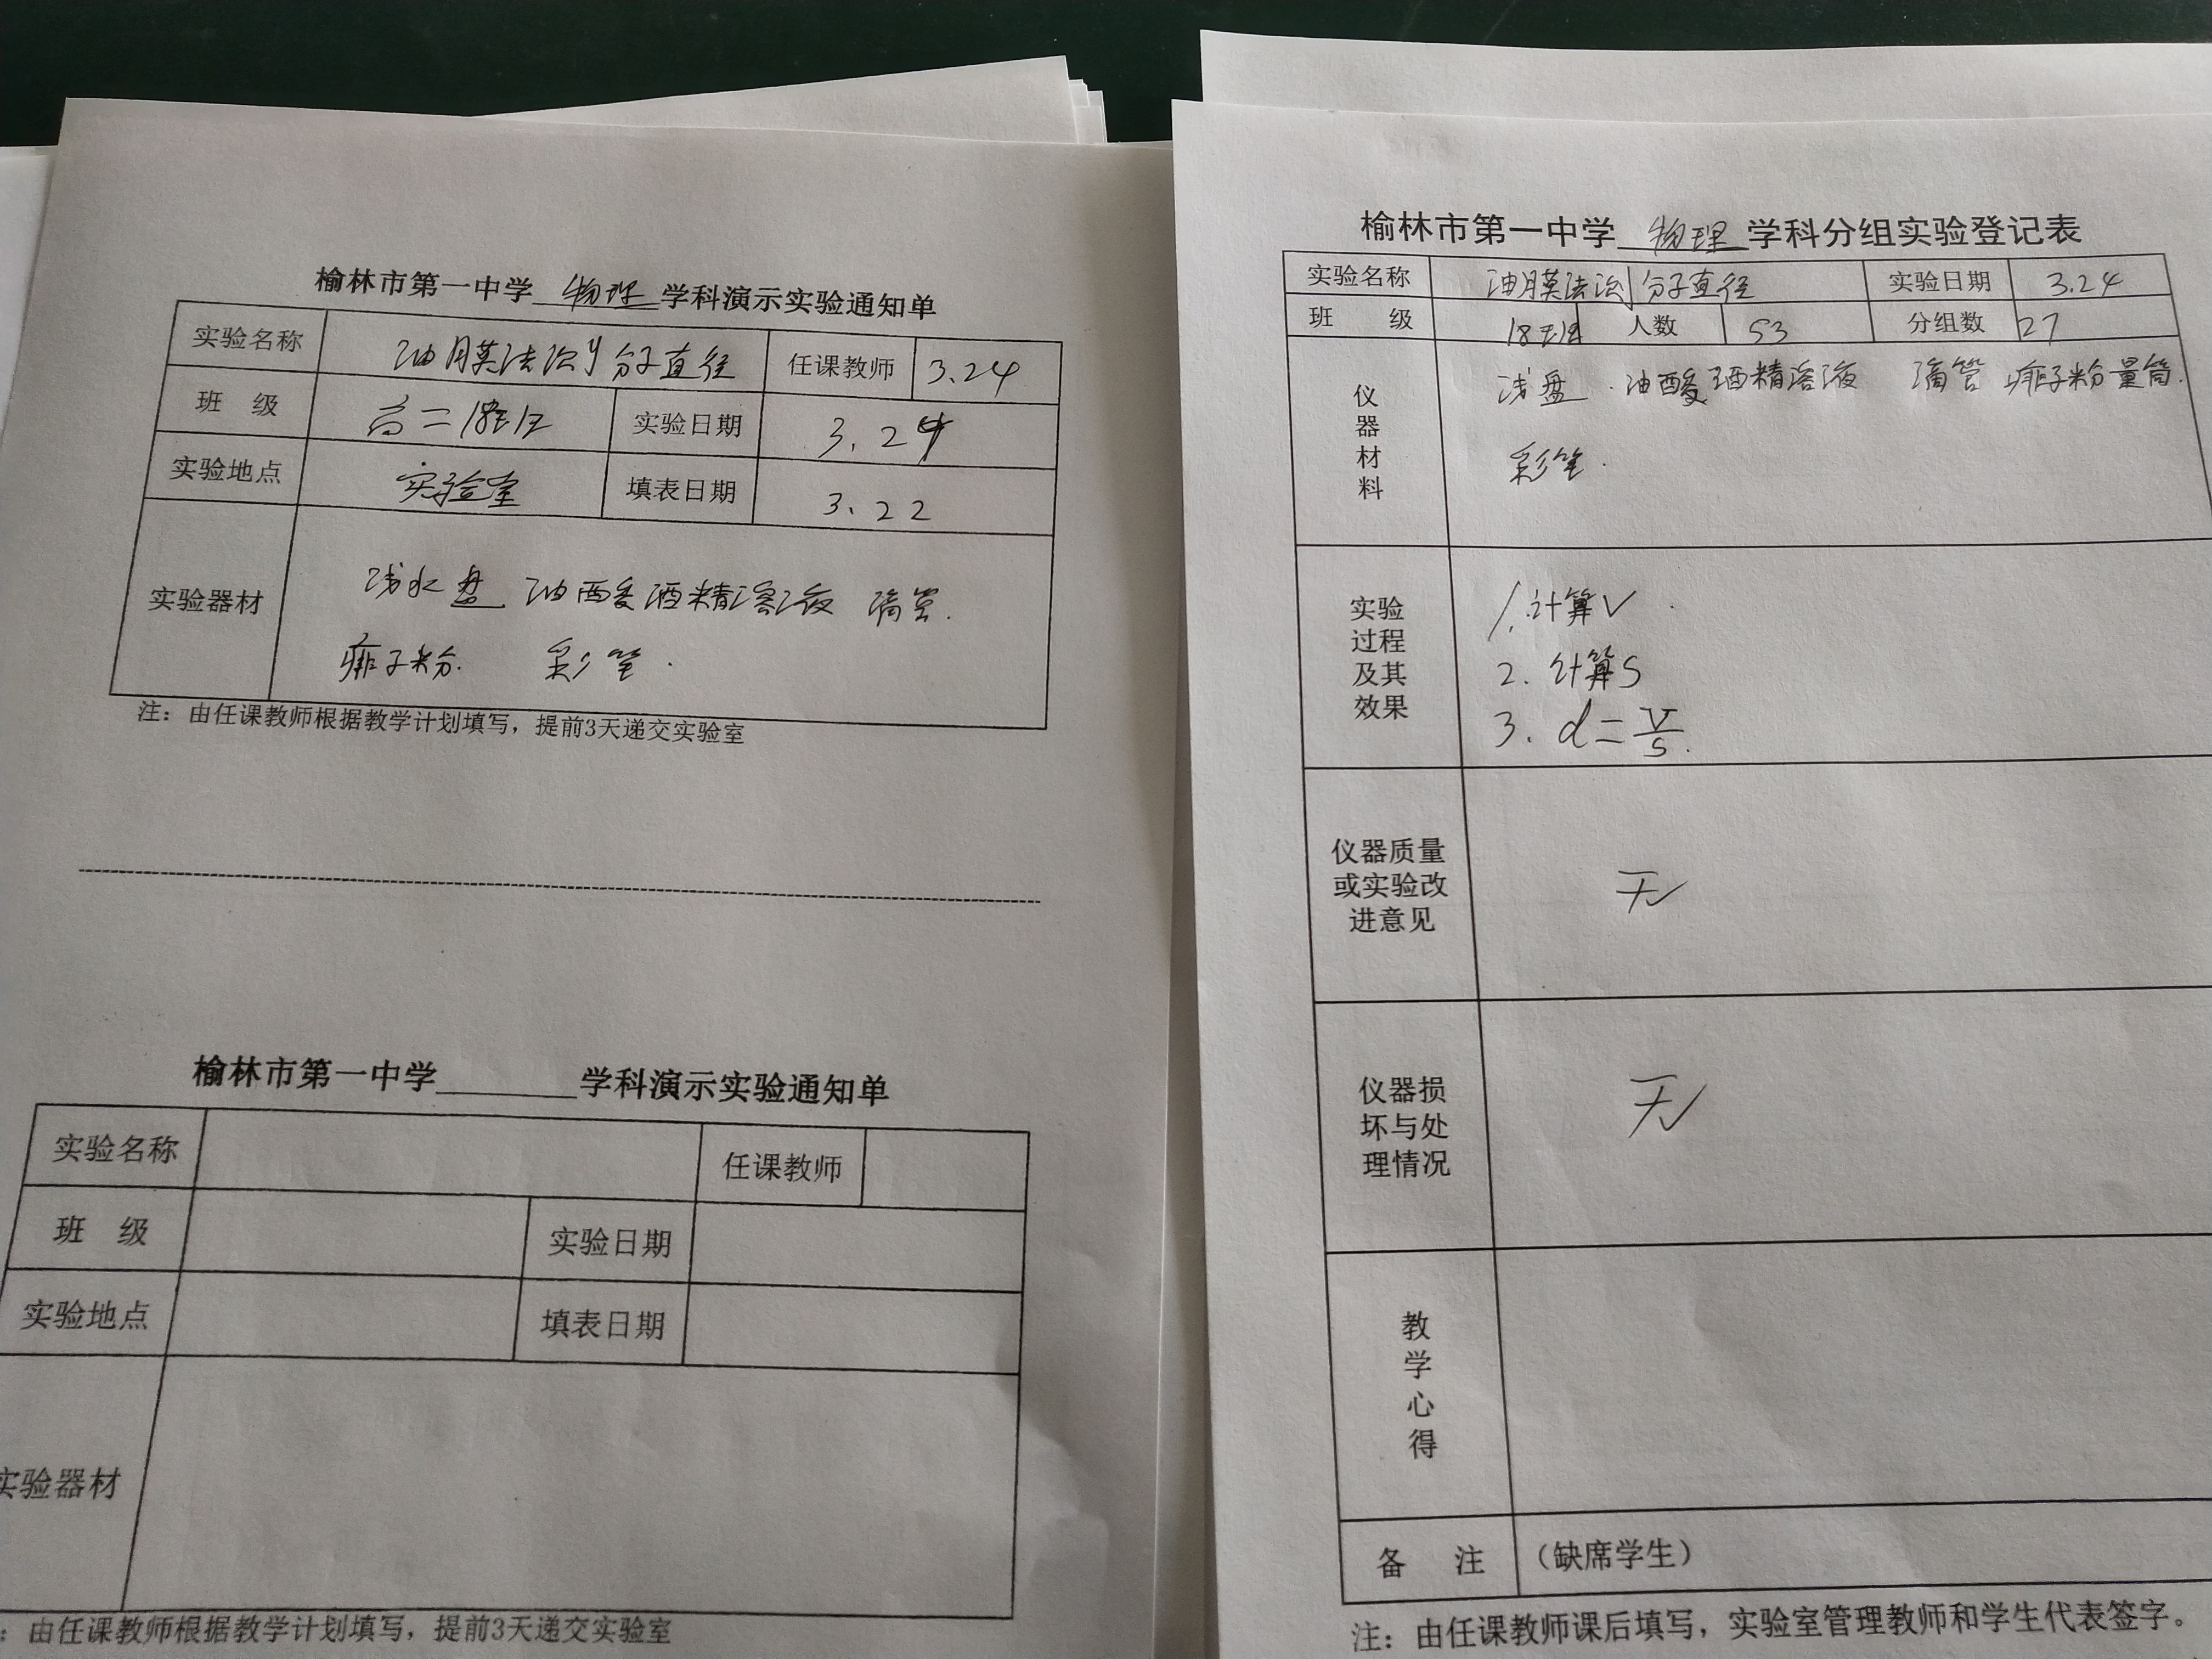 榆林市第一中学 物理 学科演示实验通知单
实验名称 油膜法测分子直径 任课教师 3.24
班 级 高二18班 实验日期 3.24
实验地点 实验室 填表日期 3.22
实验器材 浅水盘 油酸酒精溶液 滴管.
痱子粉. 彩笔.
注：由任课教师根据教学计划填写，提前3天递交实验室
榆林市第一中学________学科演示实验通知单
实验名称 任课教师
班 级 实验日期
实验地点 填表日期
实验器材
：由任课教师根据教学计划填写，提前3天递交实验室
榆林市第一中学 物理 学科分组实验登记表
实验名称 油膜法测分子直径 实验日期 3.24
班 级 18班 人数 53 分组数 27
仪器材料 浅盘. 油酸酒精溶液 滴管 痱子粉 量筒.
彩笔.
实验过程及其效果
1. 计算V.
2. 计算S
3. d=V/S.
仪器质量
或实验改
进意见
无
仪器损
坏与处
理情况
无
教学心得
备 注 （缺席学生）
注：由任课教师课后填写，实验室管理教师和学生代表签字。